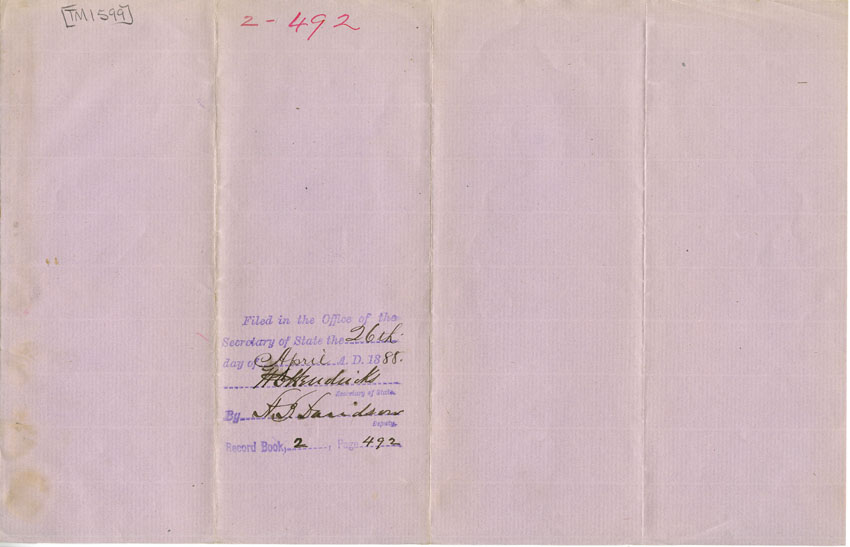 [TM1599]
2-492
Filed in the Office of the
Secretary of State the 26th
day of April A. D. 1888.
Hendricks
Secretary of State.
By Davidson
Deputy.
Record Book, 2, Page 492